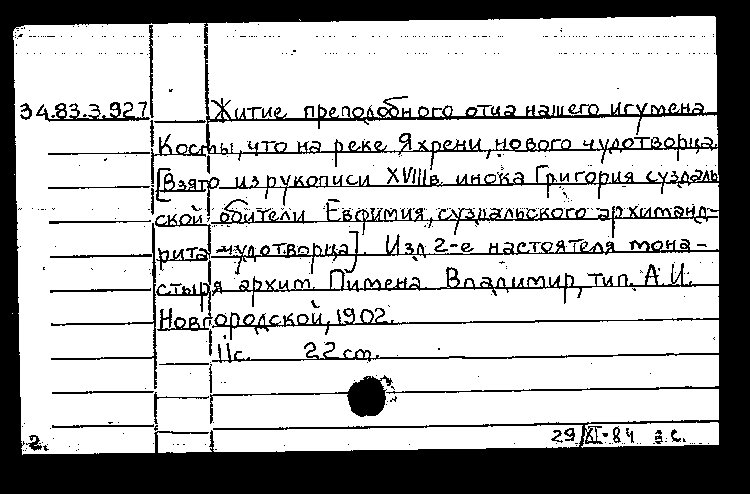 34.83.3.927 Житие преподобного отца нашего игумена
Космы, что на реке Яхрени, нового чудотворца.
[Взято из рукописи XVIIIв. инока Григория суздаль
ской обители Евфимия, суздальского архиманд-
рита-чудотворца]. Изд 2-е настоятеля мона-
стыря архим. Пимена Владимир, тип. А.И.
Новгородской, 1902.
11с. 22 cm.
2. 29/XI-84 з.с.